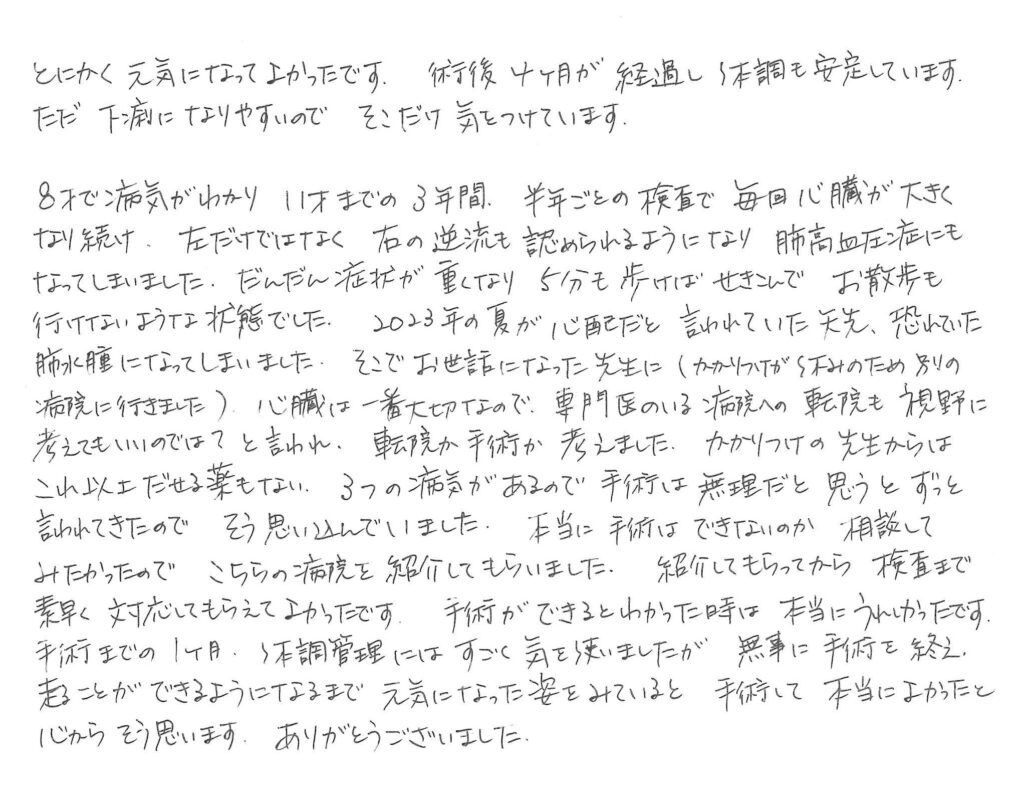 とにかく元気になってよかったです. 術後4ヶ月が経過し体調も安定しています.
ただ下痢になりやすいのでそこだけ気をつけています.
8才で病気がわかり11才までの3年間. 半年ごとの検査で毎回心臓が大きく
なり続け. 左だけではなく右の逆流も認められるようになり肺高血圧症にも
なってしまいました. だんだん症状が重くなり5分も歩けばせきこんでお散歩も
行けないような状態でした. 2023年の夏が心配だと言われていた矢先、恐れていた
肺水腫になってしまいました. そこでお世話になった先生に(かかりつけが休みのため別の
病院に行きました). 心臓は一番大切なので. 専門医のいる病院への転院も視野に
考えてもいいのでは?と言われ. 転院か手術か考えました. かかりつけの先生からは
これ以上だせる薬もない. 3つの病気があるので手術は無理だと思うとずっと
言われてきたのでそう思い込んでいました. 本当に手術はできないのか相談して
みたかったのでこちらの病院を紹介してもらいました. 紹介してもらってから検査まで
素早く対応してもらえてよかったです. 手術ができるとわかった時は本当にうれしかったです.
手術までの1ヶ月. 体調管理にはすごく気を使いましたが無事に手術を終え.
走ることができるようになるまで元気になった姿をみていると手術して本当によかったと
心からそう思います. ありがとうございました.